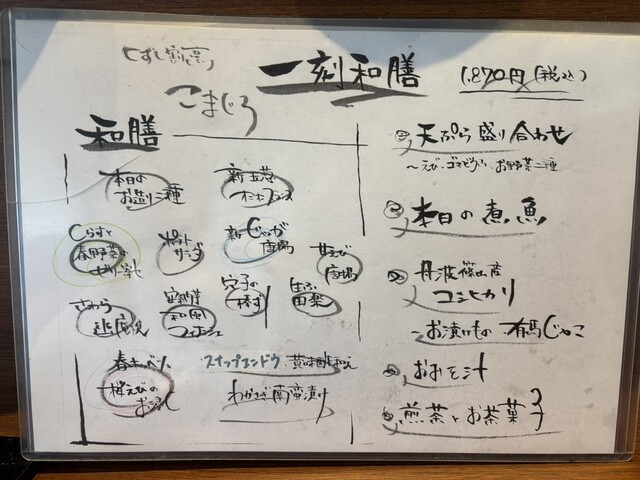 くずし割烹
こまじろ
一刻和膳
1,870円(税込)
和膳
本日の
お造り二種
新玉葱
しらすと
春野菜の
ゼリー寄せ
ポテト
サラダ
新じゃが
唐揚
甘えび
唐揚
穴子の
生ふ
田楽
さわら
和風
春キャベツ
桜えびの
おひたし
スナップエンドウ 黄味酢和え
わかさぎ南蛮漬け
天ぷら盛り合わせ
〜えび、ゴマどうふ、お野菜二種
本日の煮魚
丹波篠山産
コシヒカリ
〜お漬けもの 有馬じゃこ
おみそ汁
煎茶とお茶菓子